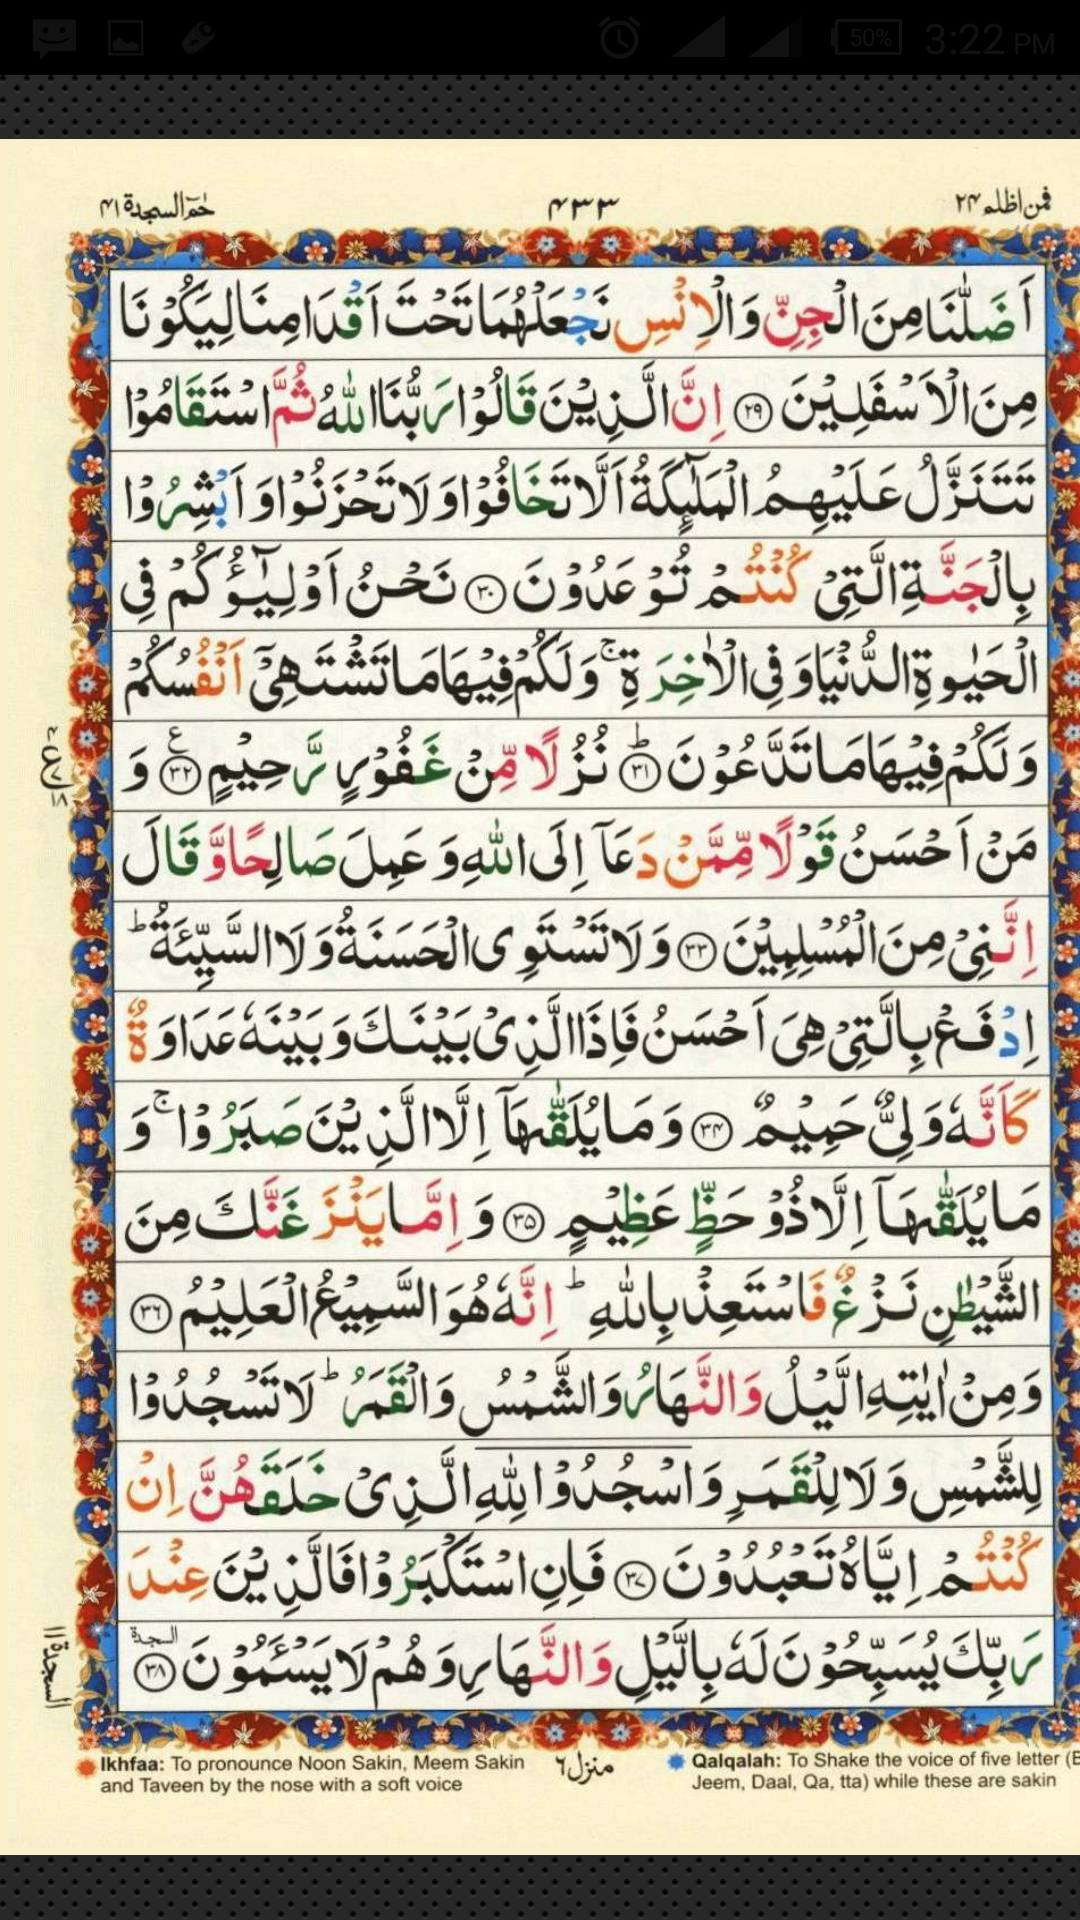 50% 3:22 PM
فمن اظلم ۲۴
۴۳۳
حٰمٓ السجدة ۴۱
اَضَلّٰنَا مِنَ الْجِنِّ وَالْاِنْسِ نَجْعَلْهُمَا تَحْتَ اَقْدَامِنَا لِيَكُوْنَا
مِنَ الْاَسْفَلِيْنَ ﴿۲۹﴾ اِنَّ الَّذِيْنَ قَالُوْا رَبُّنَا اللّٰهُ ثُمَّ اسْتَقَامُوْا
تَتَنَزَّلُ عَلَيْهِمُ الْمَلٰٓئِكَةُ اَلَّا تَخَافُوْا وَلَا تَحْزَنُوْا وَاَبْشِرُوْا
بِالْجَنَّةِ الَّتِيْ كُنْتُمْ تُوْعَدُوْنَ ﴿۳۰﴾ نَحْنُ اَوْلِيٰٓؤُكُمْ فِي
الْحَيٰوةِ الدُّنْيَا وَفِي الْاٰخِرَةِ ۚ وَلَكُمْ فِيْهَا مَا تَشْتَهِيْٓ اَنْفُسُكُمْ
وَلَكُمْ فِيْهَا مَا تَدَّعُوْنَ ﴿۳۱﴾ ؕ نُزُلًا مِّنْ غَفُوْرٍ رَّحِيْمٍ ﴿۳۲﴾ ع وَ
مَنْ اَحْسَنُ قَوْلًا مِّمَّنْ دَعَآ اِلَى اللّٰهِ وَ عَمِلَ صَالِحًا وَّ قَالَ
اِنَّنِيْ مِنَ الْمُسْلِمِيْنَ ﴿۳۳﴾ وَلَا تَسْتَوِي الْحَسَنَةُ وَلَا السَّيِّئَةُ ؕ
اِدْفَعْ بِالَّتِيْ هِيَ اَحْسَنُ فَاِذَا الَّذِيْ بَيْنَكَ وَبَيْنَهٗ عَدَاوَةٌ
كَاَنَّهٗ وَلِيٌّ حَمِيْمٌ ﴿۳۴﴾ وَمَا يُلَقّٰىهَآ اِلَّا الَّذِيْنَ صَبَرُوْا ۚ وَ
مَا يُلَقّٰىهَآ اِلَّا ذُوْ حَظٍّ عَظِيْمٍ ﴿۳۵﴾ وَ اِمَّا يَنْزَغَنَّكَ مِنَ
الشَّيْطٰنِ نَزْغٌ فَاسْتَعِذْ بِاللّٰهِ ؕ اِنَّهٗ هُوَ السَّمِيْعُ الْعَلِيْمُ ﴿۳۶﴾
وَمِنْ اٰيٰتِهِ الَّيْلُ وَالنَّهَارُ وَالشَّمْسُ وَالْقَمَرُ ؕ لَا تَسْجُدُوْا
لِلشَّمْسِ وَلَا لِلْقَمَرِ وَاسْجُدُوْا لِلّٰهِ الَّذِيْ خَلَقَهُنَّ اِنْ
كُنْتُمْ اِيَّاهُ تَعْبُدُوْنَ ﴿۳۷﴾ فَاِنِ اسْتَكْبَرُوْا فَالَّذِيْنَ عِنْدَ
رَبِّكَ يُسَبِّحُوْنَ لَهٗ بِالَّيْلِ وَالنَّهَارِ وَهُمْ لَا يَسْـَٔمُوْنَ ﴿۳۸﴾ السجدة
السجدة ۱۱
Ikhfaa: To pronounce Noon Sakin, Meem Sakin
and Taveen by the nose with a soft voice
منزل ۶
Qalqalah: To Shake the voice of five letter (B
Jeem, Daal, Qa, tta) while these are sakin